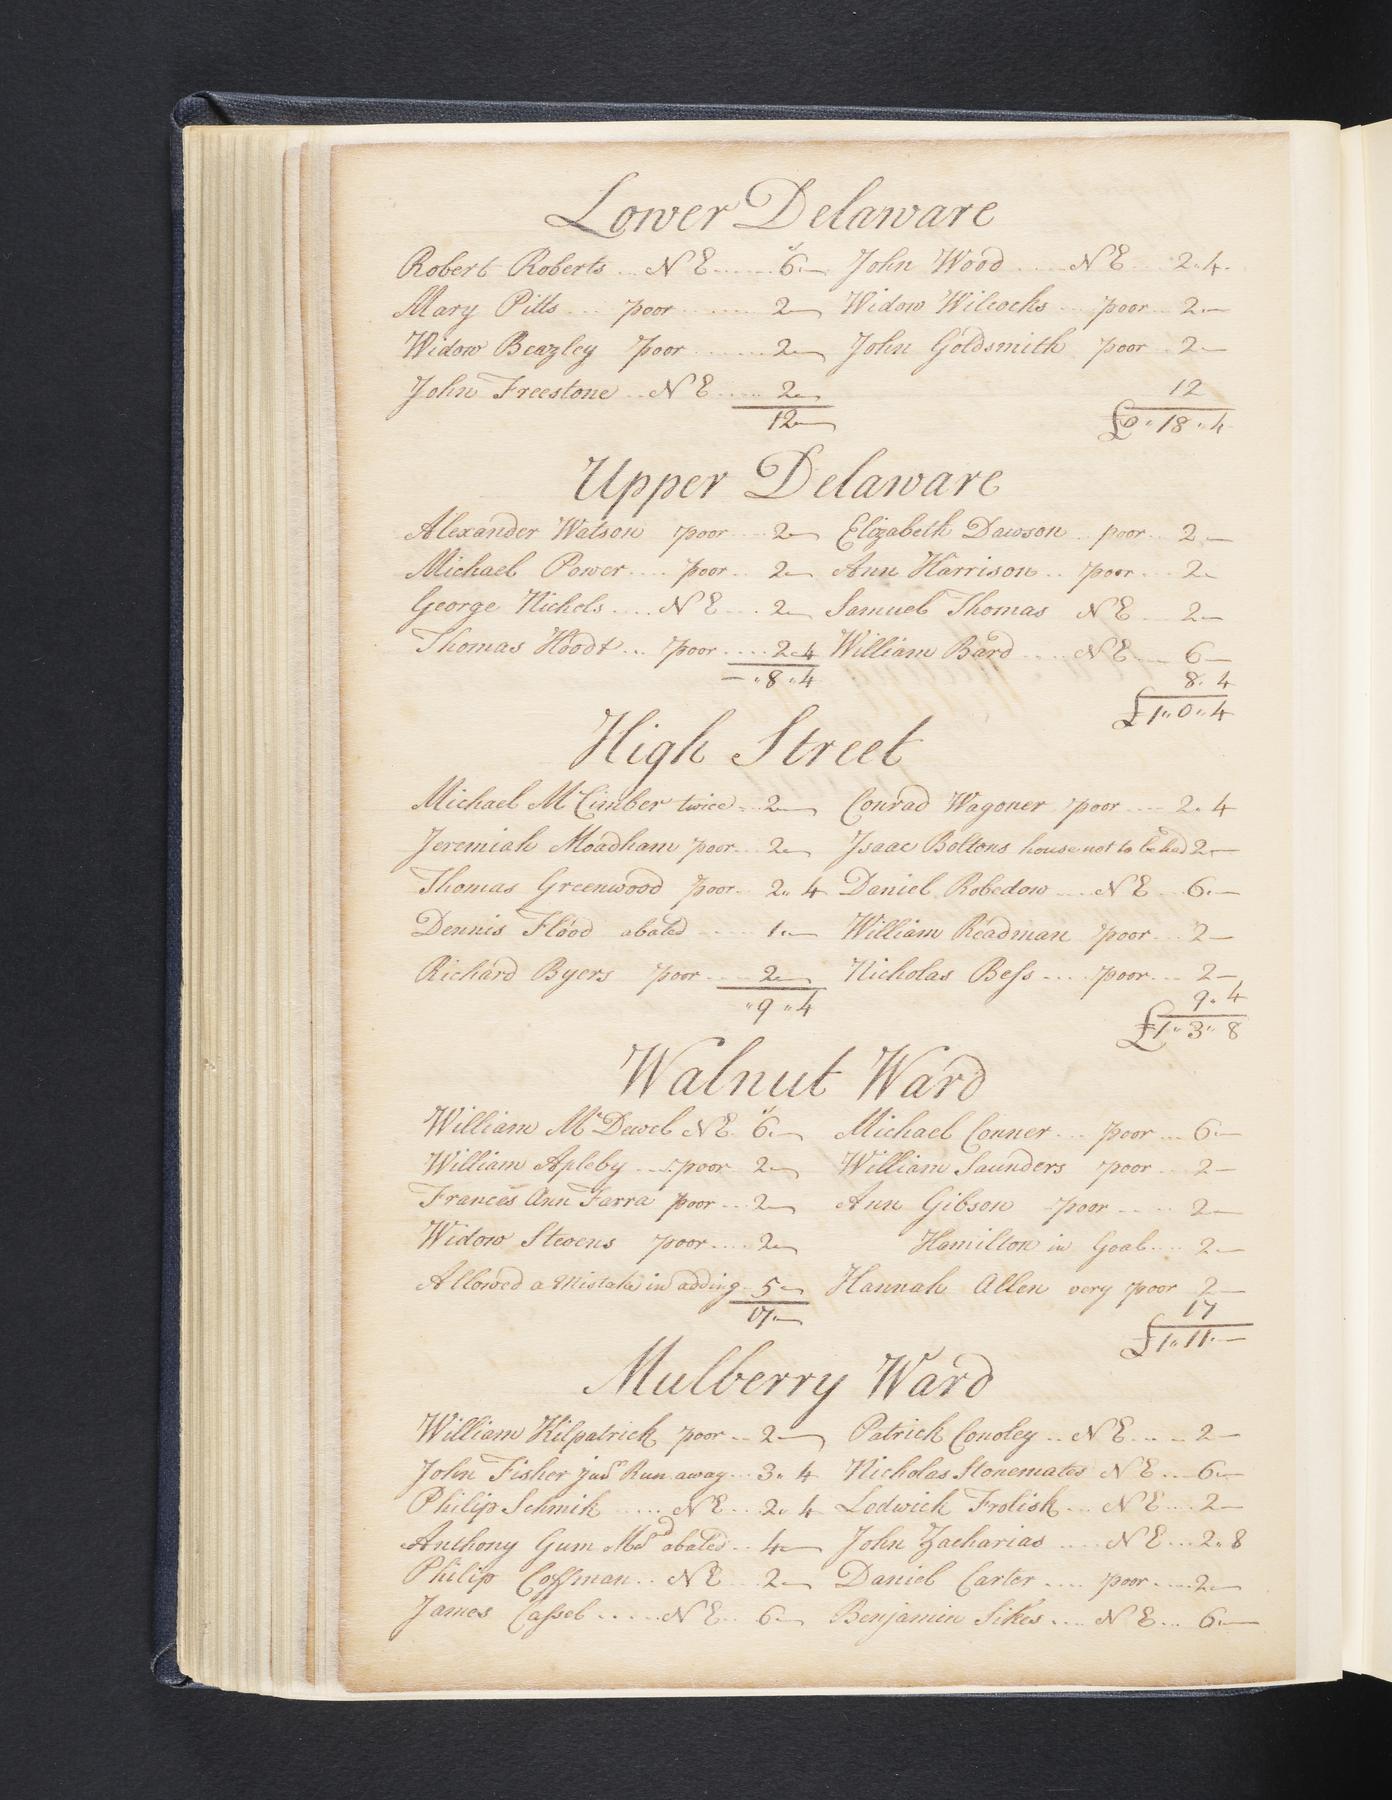 Lower Delaware
Robert Roberts ... N E ...... 6 — John Wood ..... N E ... 2 . 4 .
Mary Pitts ... poor ....... 2 — Widow Wilcocks ... poor .. 2 . —
Widow Beazley poor ....... 2 — John Goldsmith poor .. 2 —
John Freestone .. N E ..... 2 — 12
12 — £0 " 18 " 4
Upper Delaware
Alexander Watson poor .... 2 — Elizabeth Dawson .. poor ... 2 . —
Michael Power .... poor .. 2 — Ann Harrison .. poor ... 2 .
George Nichols .... N E ... 2 — Samuel Thomas N E ... 2 —
Thomas Hoodt ... poor .... 2 . 4 William Bard .... N E ... 6 —
— " 8 " 4 8 . 4
£1 " 0 " 4
High Street
Michael McCimber twice .. 2 — Conrad Wagoner poor .... 2 . 4
Jeremiah Moadham poor .. 2 — Isaac Boltons house not to be had 2 . —
Thomas Greenwood poor .. 2 " 4 Daniel Robedow .... N E ... 6 . —
Dennis Flood abated ..... 1 . — William Readman poor ... 2 —
Richard Byers poor .... 2 — Nicholas Bess .... poor .... 2 —
" 9 " 4 9 . 4
£1 " 3 " 8
Walnut Ward
William McDewel N E . 6 . — Michael Conner ... poor ... 6 . —
William Apleby .... poor .. 2 — William Saunders poor ... 2 —
Frances Ann Farra poor ... 2 — Ann Gibson poor ..... 2 —
Widow Stevens poor .... 2 — Hamilton in Goal .... 2 —
Allowed a Mistake in adding . 5 — Hannah Allen very poor 2 —
17 . — 17
£1 " 11 . —
Mulberry Ward
William Kilpatrick poor .. 2 — Patrick Conoley .. N E .... 2 —
John Fisher Junr Run away ... 3 " 4 Nicholas Stonemates N E ... 6 . —
Philip Schnik ..... N E ... 2 " 4 Lodwick Frolish ... N E .... 2 —
Anthony Gum abated .. 4 — John Zacharias .... N E ... 2 " 8
Philip Coffman .. N E ... 2 — Daniel Carter .... poor .... 2 —
James Cassel ..... N E .. 6 — Benjamin Sikes .... N E ... 6 . —